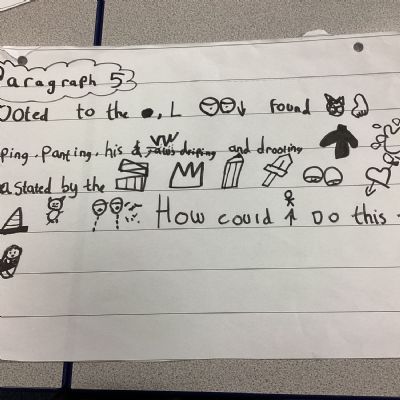 Paragraph 5
ooted to the , L found
ping, panting, his and drooling
stated by the
How could Do this